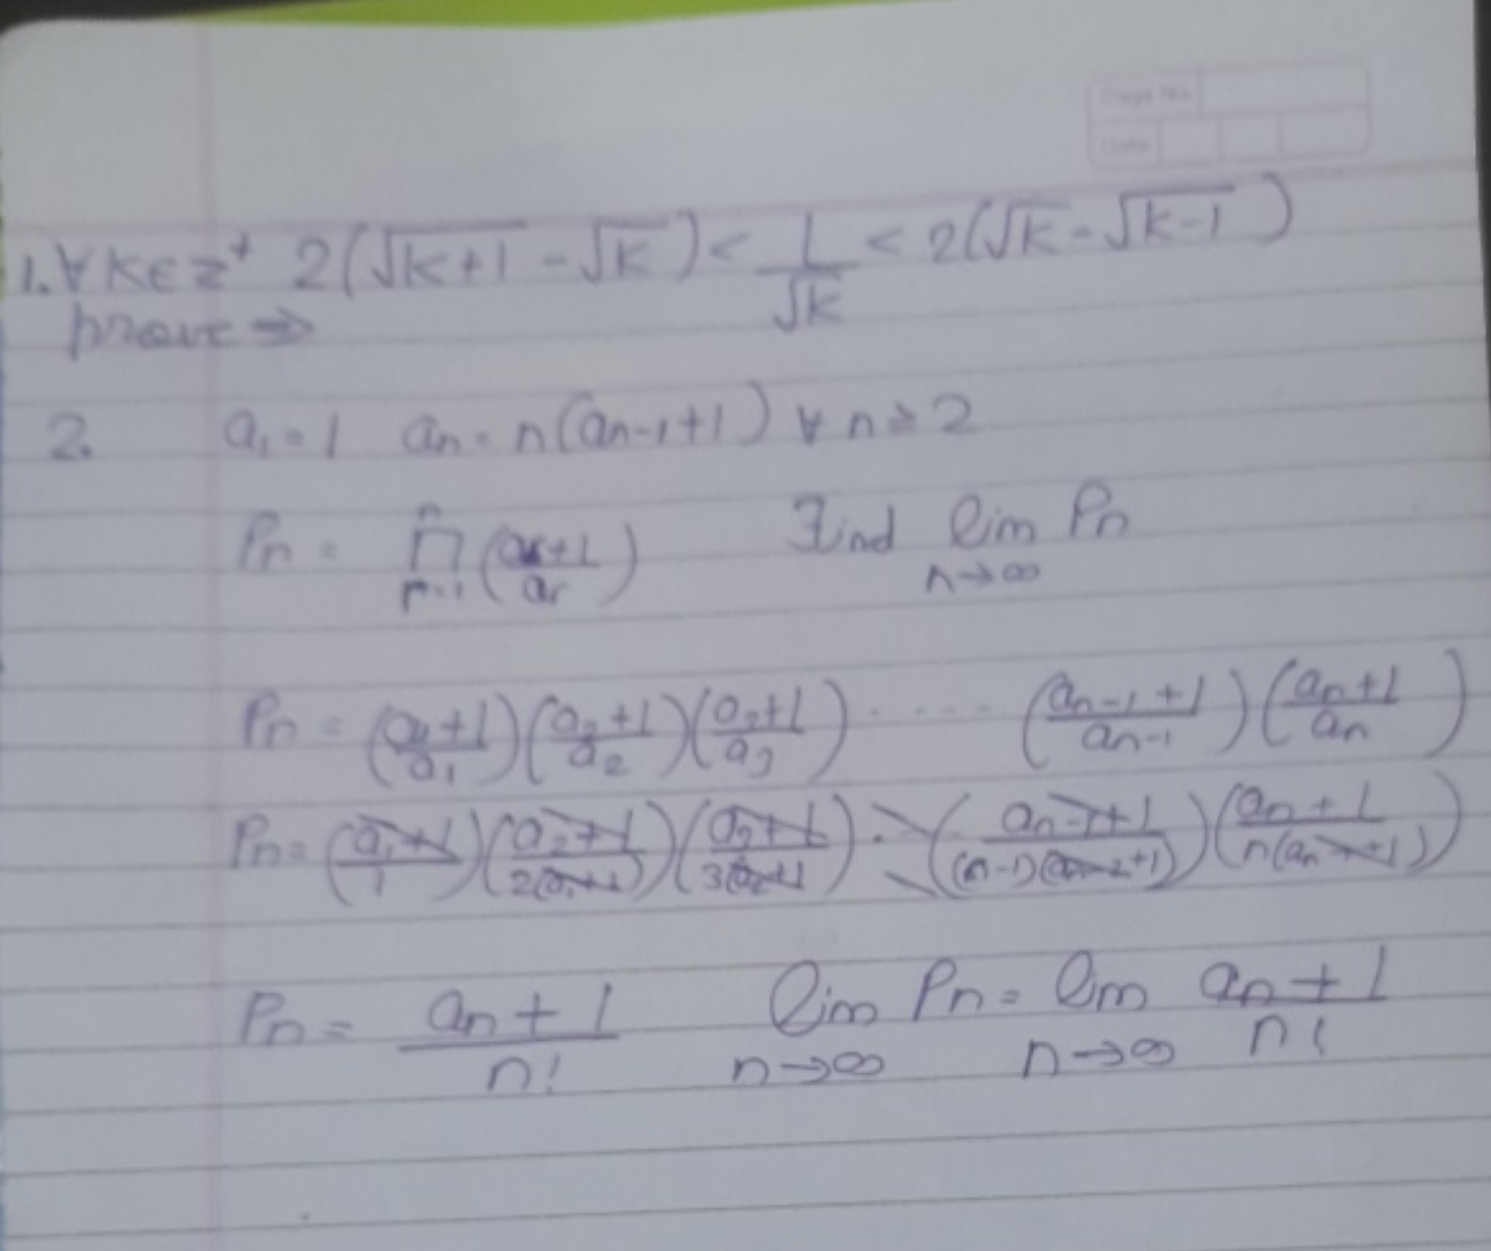 Page No.
Date
1. ∀ K ∈ z⁺ 2(√(K+1) - √K) < 1/√K < 2(√K - √(K-1))
prove ⇒
2. a₁ = 1 aₙ = n(aₙ₋₁+1) ∀ n ≥ 2
Pₙ = ∏ⁿᵣ₌₁ ((aᵣ+1)/aᵣ) Find lim n→∞ Pₙ
Pₙ = ((a₁+1)/a₁)((a₂+1)/a₂)((a₃+1)/a₃) ..... ((aₙ₋₁+1)/aₙ₋₁)((aₙ+1)/aₙ)
Pₙ = ((a₁+1)/1)((a₂+1)/2(a₁+1))((a₃+1)/3(a₂+1)) ... ((aₙ₋₁+1)/(n-1)(aₙ₋₂+1))((aₙ+1)/n(aₙ₋₁+1))
Pₙ = (aₙ+1)/n! lim n→∞ Pₙ = lim n→∞ (aₙ+1)/n!